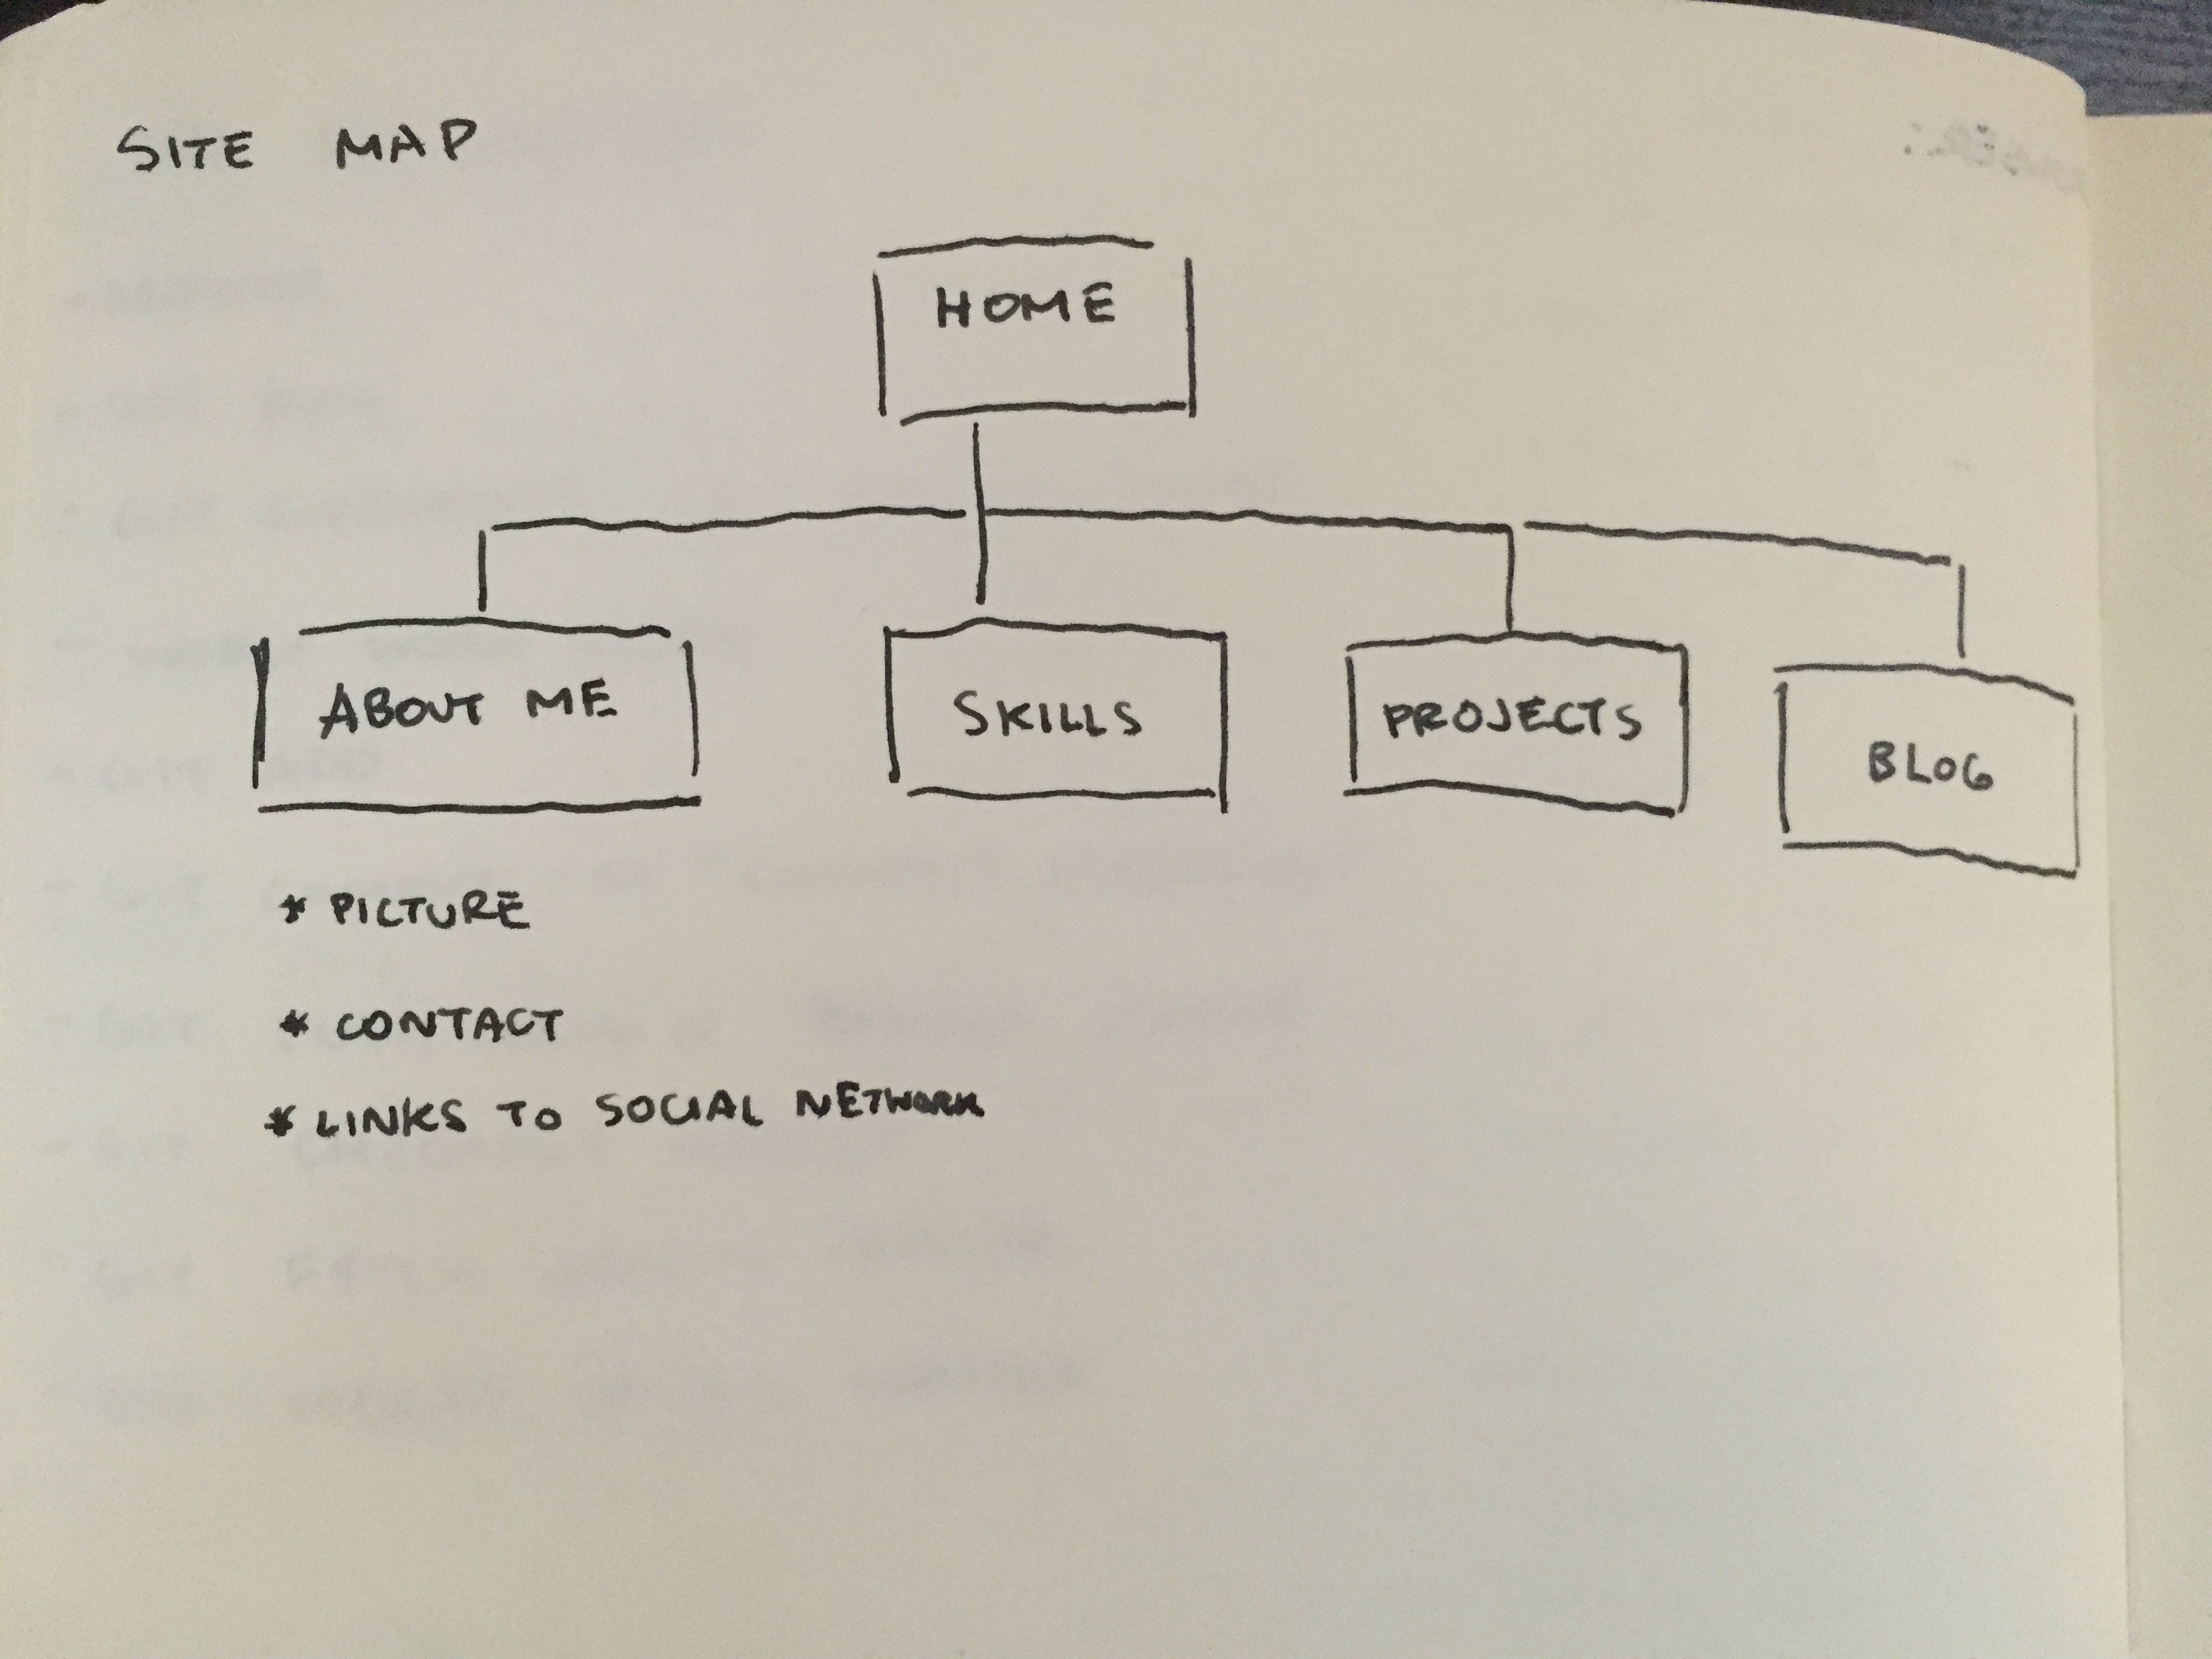 SITE MAP
HOME
ABOUT ME
SKILLS
PROJECTS
BLOG
* PICTURE
* CONTACT
* LINKS TO SOCIAL NETWORK